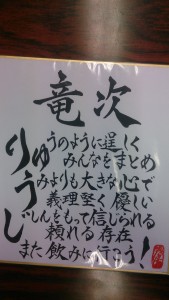 竜次
りゅうのように逞しく
みんなをまとめ
うみよりも大きな心で
義理堅く優しい
じしんをもって信じられる
頼れる存在
また飲みに行こう!